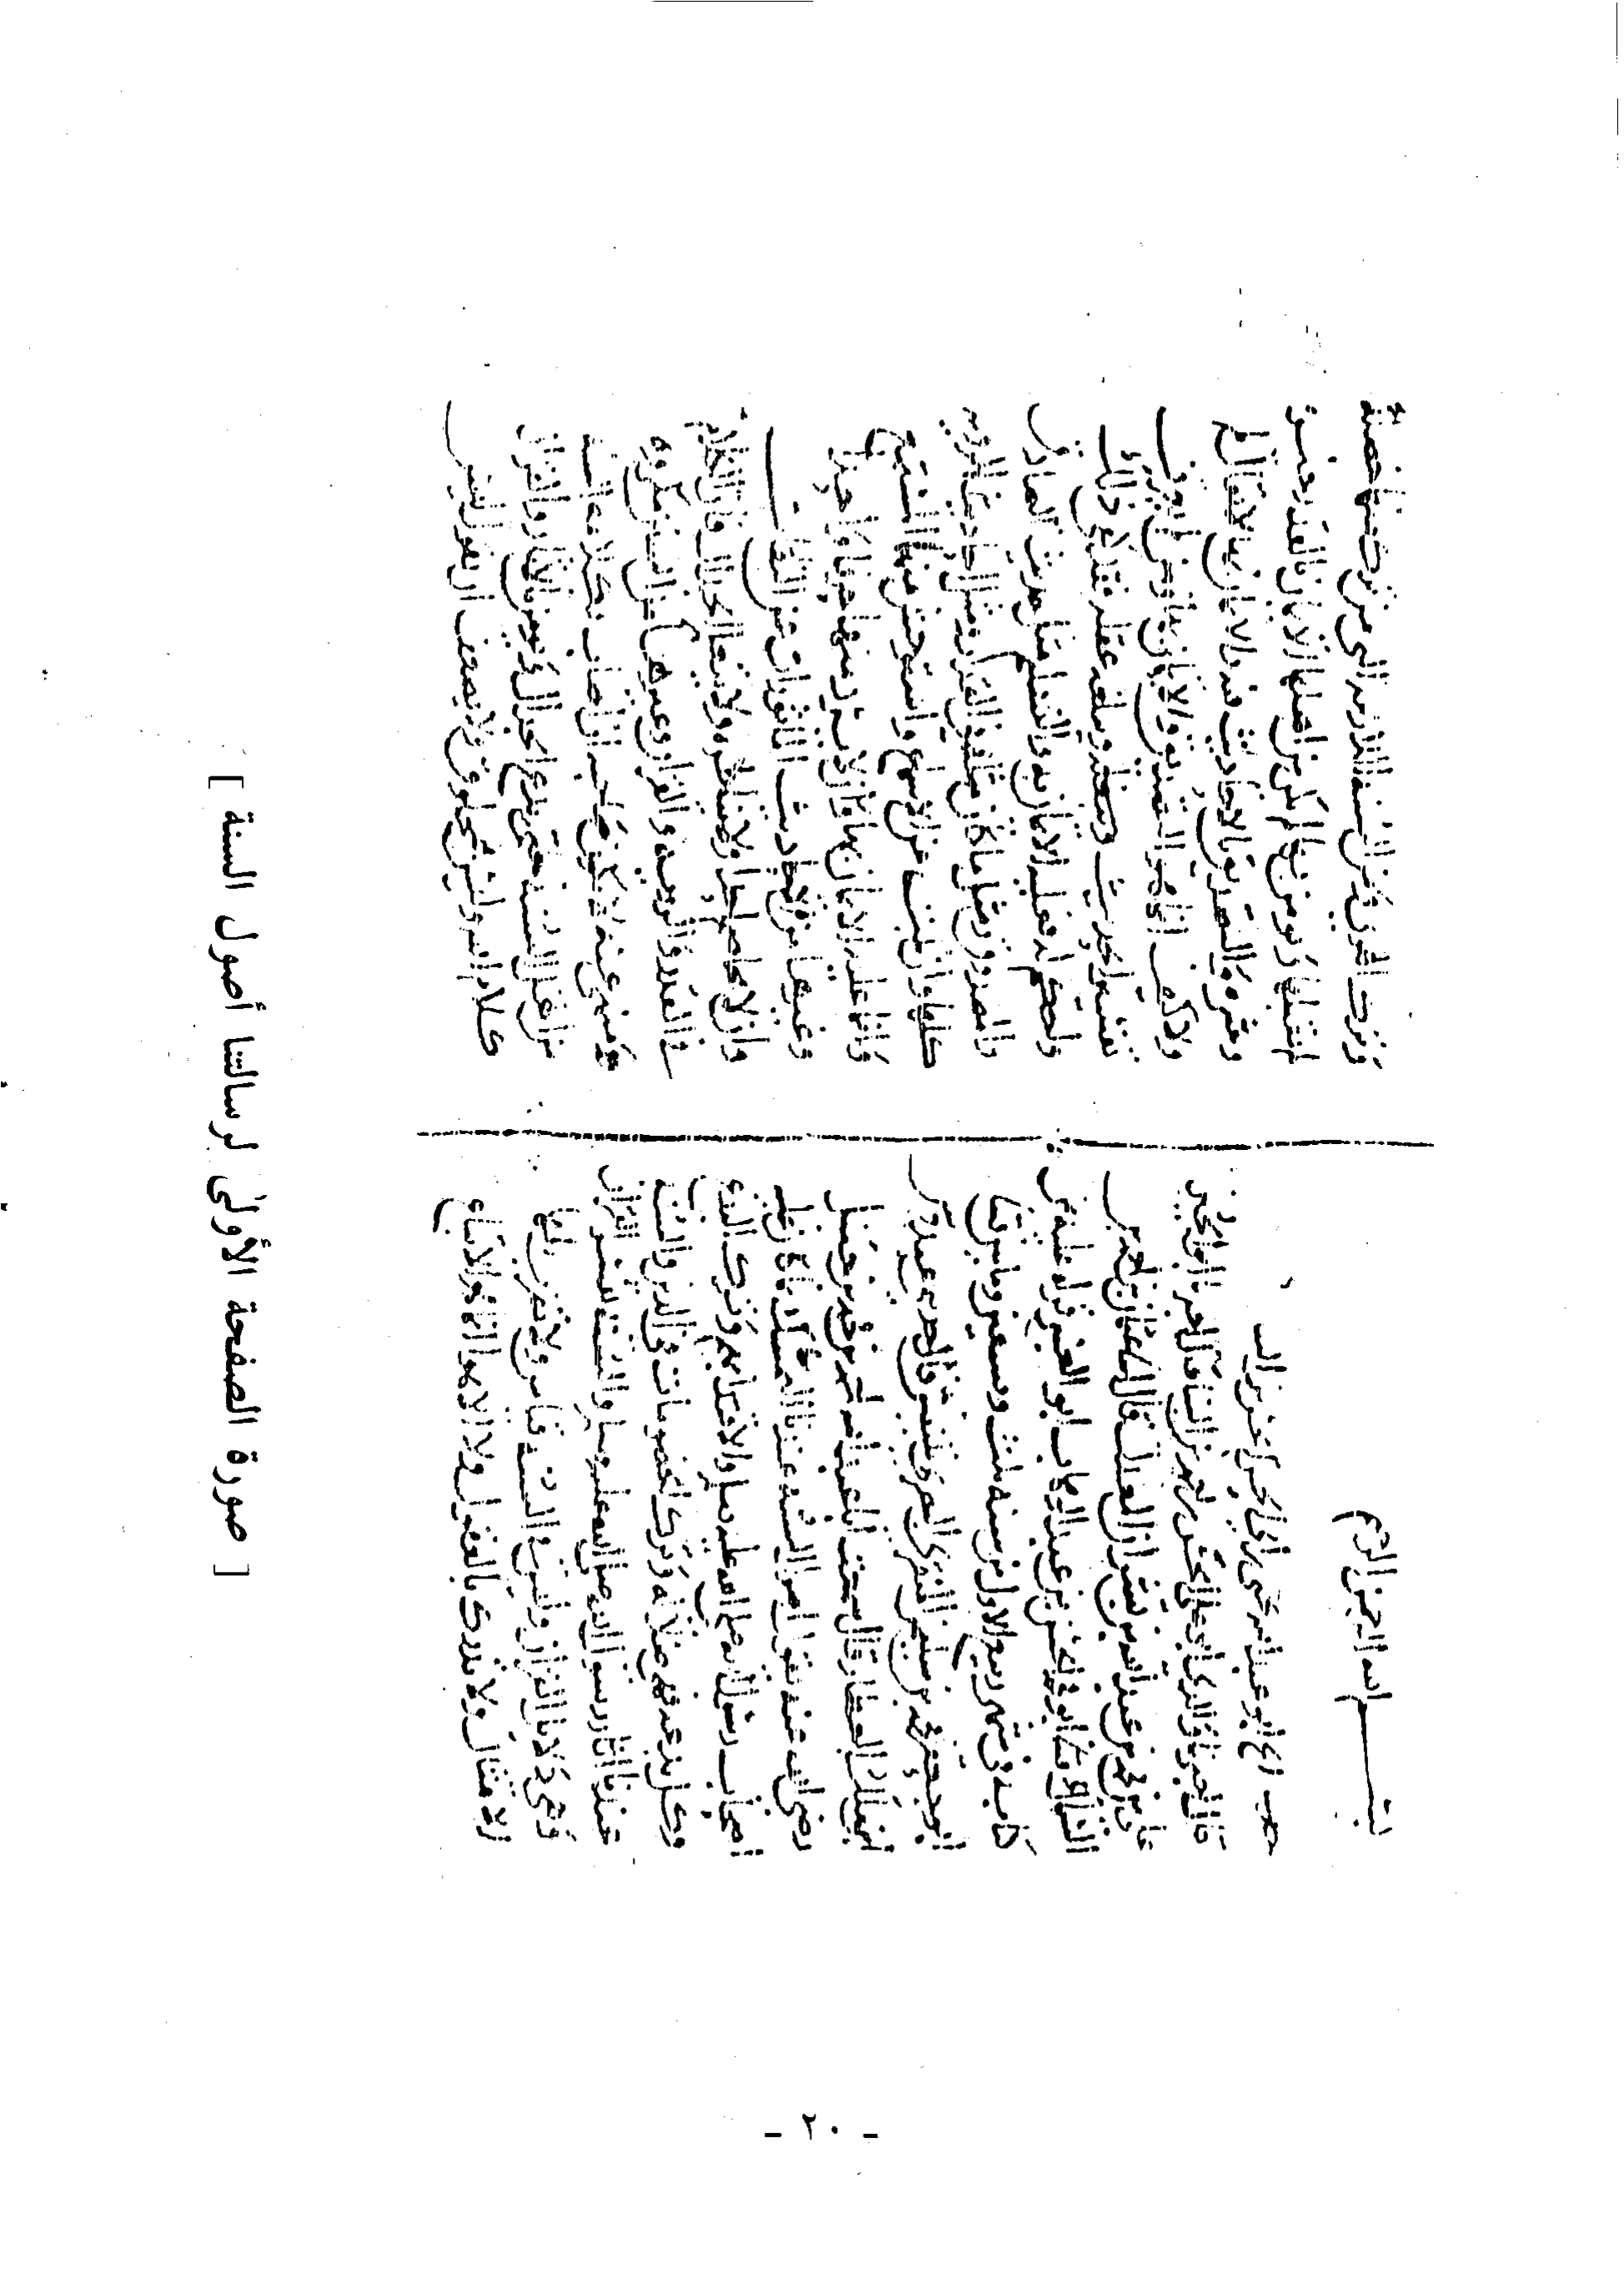 بسم الله الرحمن الرحيم
قال اخبرنا والدي ابو علي الحسن بن احمد بن البنا قال اخبرنا ابو الحسين
علي بن محمد بن عبد الله بن بشران المعدل قال انا عثمان بن احمد
ابو محمد الحسن بن عبد الوهاب ابو العنبر قراة عليه من
كتابه في شهر ربيع الاول من سنة ثلث وتسعين ومايتين ثنا
ابو جعفر محمد بن سليمن المنقري البصري بتنيس قال حدثني عبدوس
بن مالك العطار قال سمعت ابا عبد الله احمد بن محمد بن حنبل
رضي الله عنه يقول اصول السنة عندنا التمسك بما كان عليه
اصحاب رسول الله صلى الله عليه وسلم والاقتدا بهم وترك البدع
وكل بدعة فهي ضلالة وترك الخصومات في الدين والسنة
عندنا اثار رسول الله صلى الله عليه وسلم والسنة تفسر القران
وهي دلايل القران وليس في السنة قياس ولا تضرب لها
الامثال ولا تدرك بالعقول ولا الاهوا انما هو الاتباع
وترك الهوى ومن السنة اللازمة التي من ترك منها خصلة
لم يقبلها ويومن بها لم يكن من اهلها الايمان بالقدر خيره
وشره والتصديق بالاحاديث فيه والايمان بها لا يقال لم
ولا كيف انما هو التصديق والايمان بها ومن لم يعرف
تفسير الحديث ويبلغه عقله فقد كفي ذلك
واحكم له فعليه الايمان به والتسليم مثل حديث الصادق
المصدوق ومثل ما كان مثله في القدر ومثل احاديث الروية
كلها وان نبت عن الاسماع واستوحش منها المستمع
فانما عليه الايمان بها وان لا يرد منها حرفا واحدا
وغيرها من الاحاديث الماثورات عن الثقات
وان لا يخاصم احدا ولا يناظره ولا يتعلم الجدال فان الكلام
في القدر والروية والقران وغيرها من السنن مكروه
ومنهي عنه لا يكون صاحبه وان اصاب بكلامه السنة
من اهل السنة حتى يدع الجدال ويسلم ويومن بالاثار والقران
كلام الله وليس بمخلوق ولا يضعف ان يقول ليس
[ صورة الصفحة الأولى لرسالتنا أصول السنة ]
- ٢٠ -